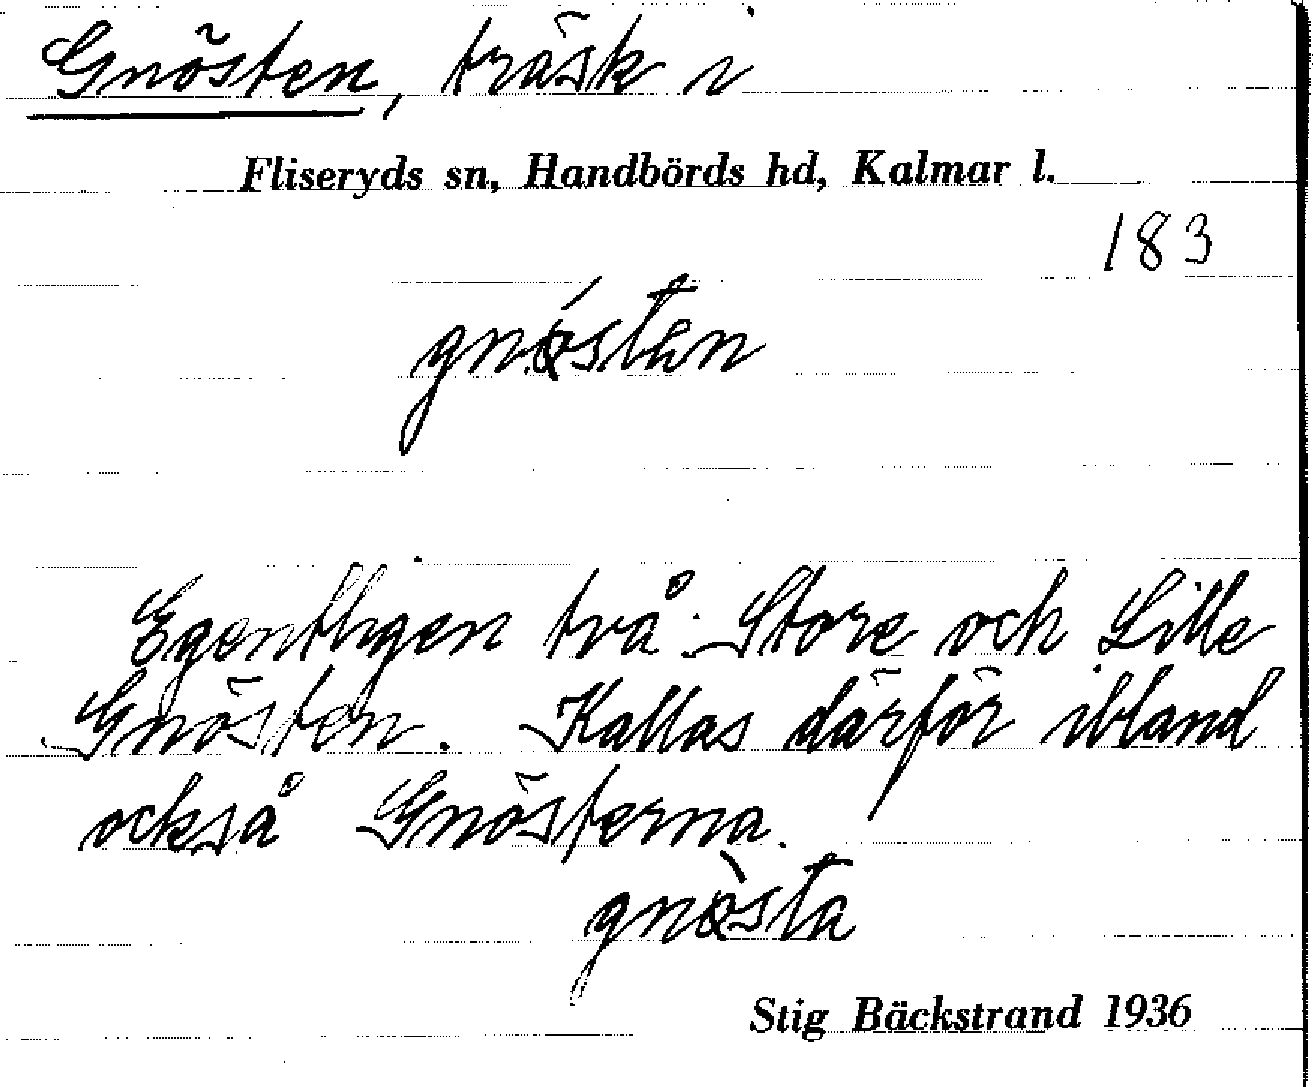 Gnösten, träsk i
Fliseryds sn, Handbörds hd, Kalmar l.
183
Egentligen två: Store och Lille
Gnösten. Kallas därför ibland
också Gnösterna.
Stig Bäckstrand 1936